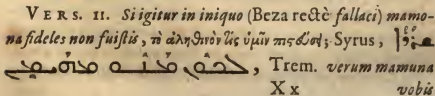 VERS. 11. Si igitur in iniquo (Beza rectè fallaci) mamo-
na fideles non fuistis, τὸ ἀληθινὸν τίς ὑμῖν πιστεύσει; Syrus,
, Trem. verum mamuna
X x vobis